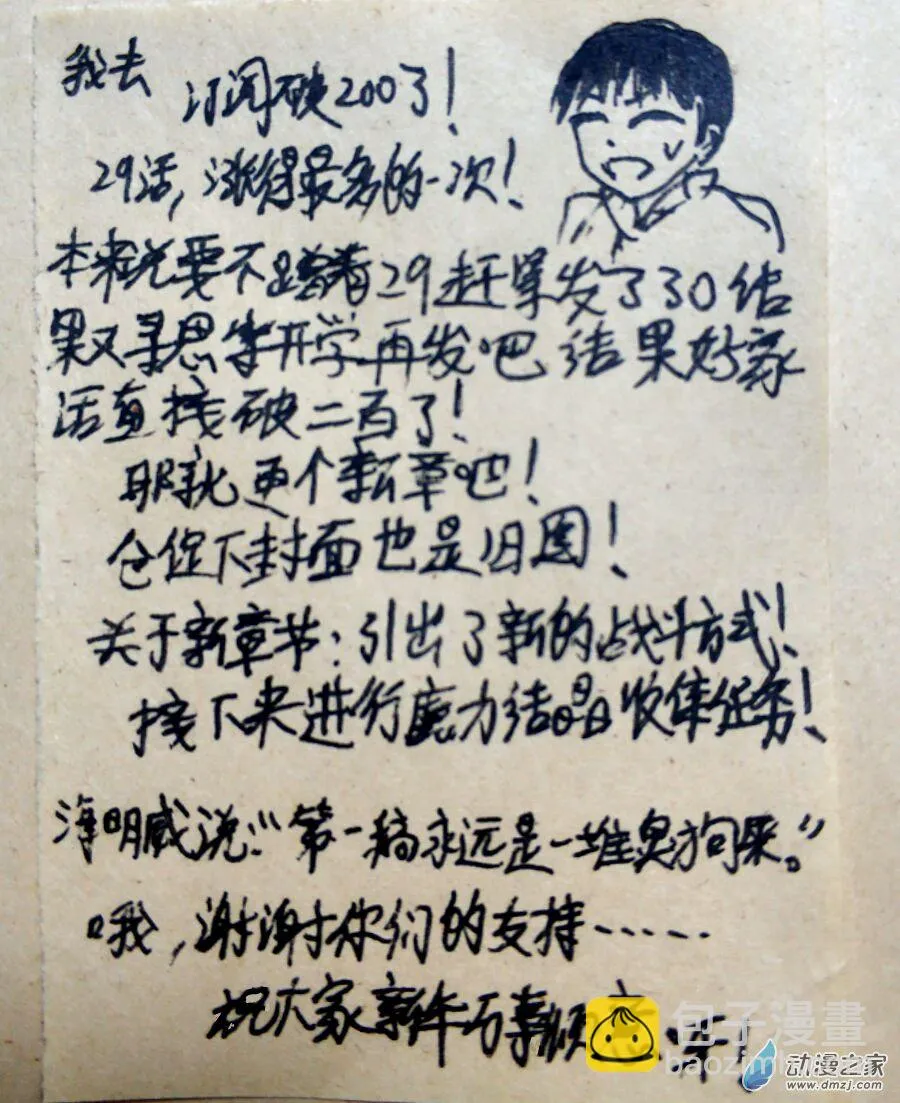 我去 订阅破200了!
29话,涨得最多的一次!
本来说要不蹭着29赶紧发了30结
果又寻思等开学再发吧 结果好家
活直接破二百了!
那就更个新章吧!
仓促下封面也是旧图!
关于新章节:引出了新的战斗方式!
接下来进行魔力结晶收集任务!
海明威说:“第一稿永远是一堆臭狗屎。”
哦,谢谢你们的支持……
祝大家新年万事顺
包子漫畫
baozimh
动漫之家
www.dmzj.com